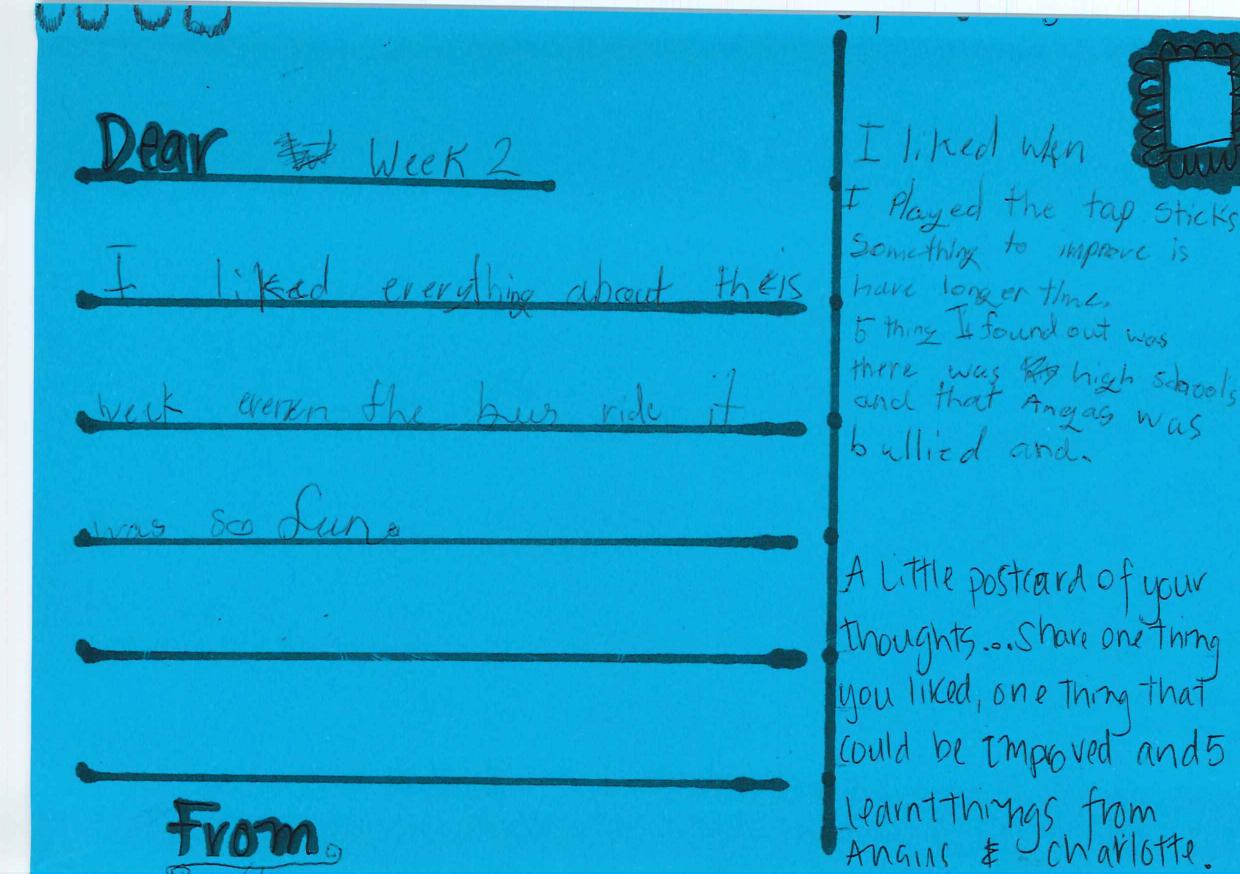 Dear Week 2
I liked everything about theis
week even the bus ride it
was so fun.
From.
I liked when
I Played the tap sticks
Something to improve is
have longer time.
5 thing I found out was
there was high schools
and that Angas was
bullied and.
A Little postcard of your
thoughts...Share one thing
you liked, one thing that
could be improved and 5
learnt things from
& charlotte.